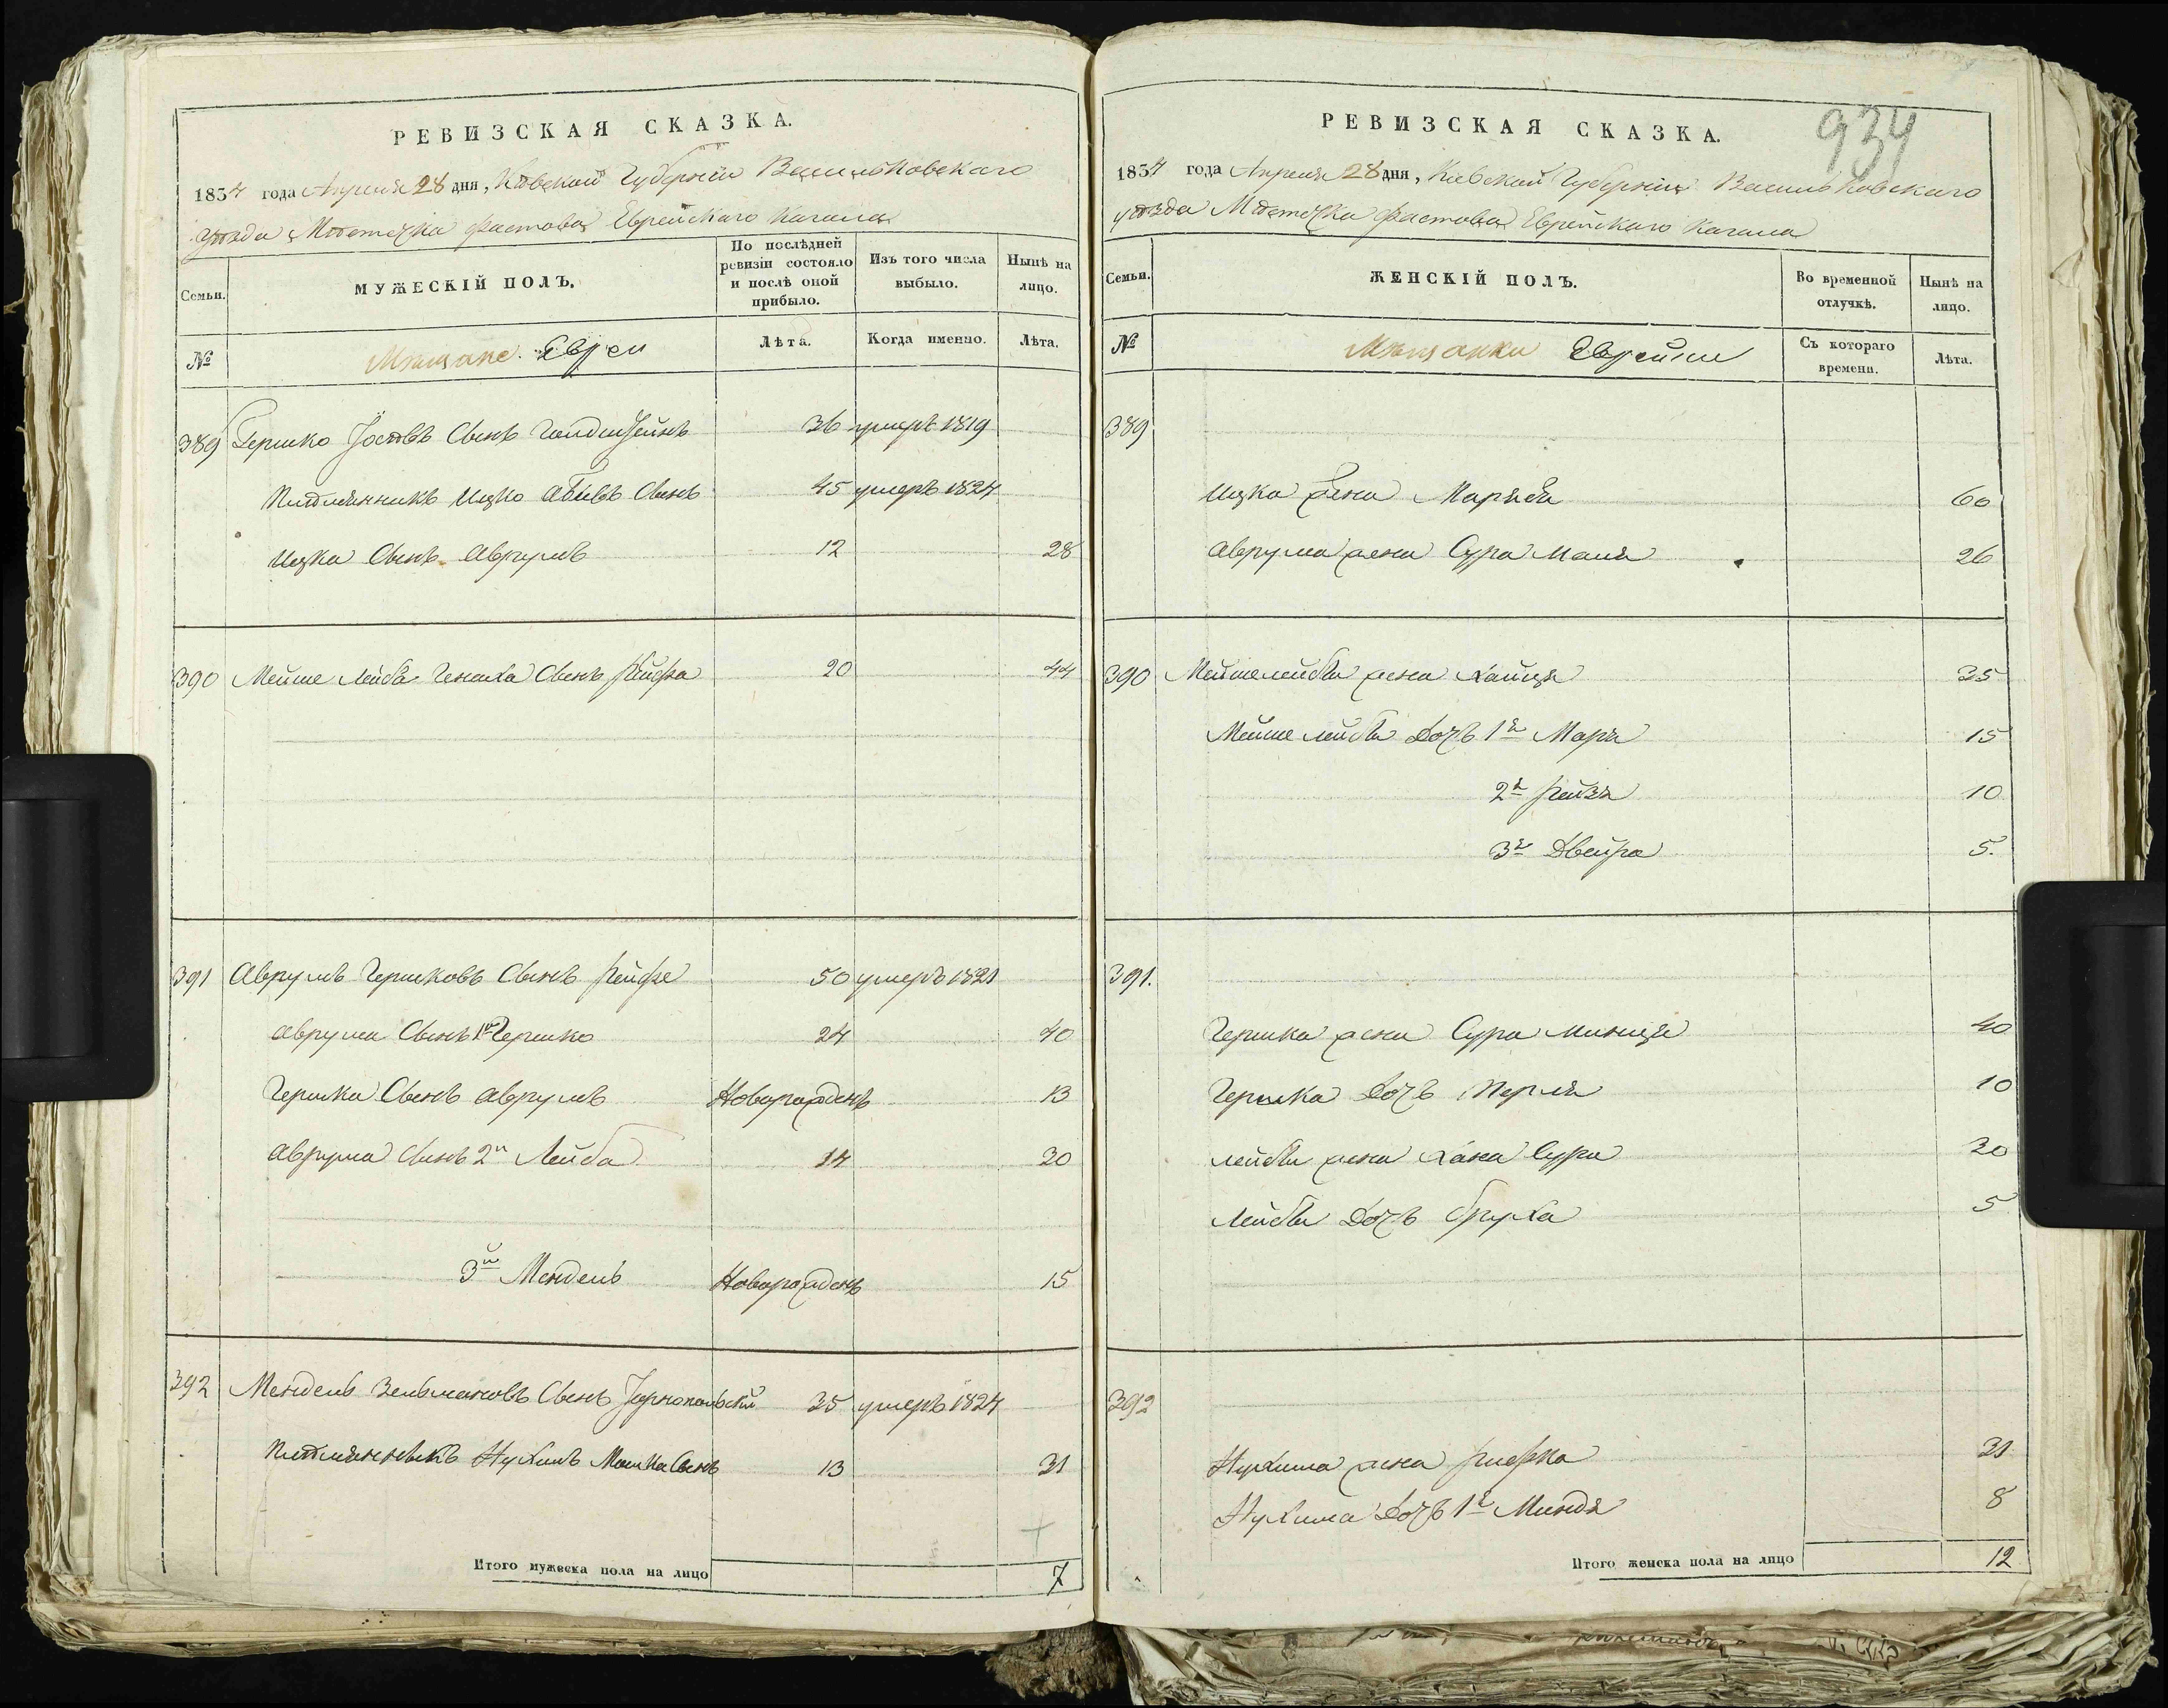 РЕВИЗСКАЯ СКАЗКА.
1834 года Апреля 28 дня, Кіевской Губерніи Васильковскаго
уѣзда Мѣстечка Фастова Еврейскаго Кагала
Семьи.
МУЖЕСКІЙ ПОЛЪ.
По послѣдней ревизіи состояло и послѣ оной прибыло.
Изъ того числа выбыло.
Нынѣ на лицо.
№
Мѣщане Евреи
Лѣта.
Когда именно.
Лѣта.
389 Гершко Іосъовъ Сынъ 36 умеръ 1819
Племянникъ Ицко Сынъ 45 умеръ 1824
Ицка Сынъ Аврумъ 12 28
390 Мейше Лейба Сынъ 20 44
391 Аврумъ Гершковъ Сынъ 50 умеръ 1821
Аврума Сынъ 1й Гершко 24 40
Гершка Сынъ Аврумъ Новорожденъ 13
Аврума Сынъ 2й Лейба 14 30
3й Мендель Новорожденъ 15
392 Мендель Зельмановъ Сынъ 35 умеръ 1824
Племянникъ Нухимъ Мошка Сынъ 13 31
Итого мужеска пола на лицо 7
934
РЕВИЗСКАЯ СКАЗКА.
1834 года Апреля 28 дня, Кіевской Губерніи Васильковскаго
уѣзда Мѣстечка Фастова Еврейскаго Кагала
Семьи.
ЖЕНСКІЙ ПОЛЪ.
Во временной отлучкѣ.
Нынѣ на лицо.
№
Мѣщанки Еврейки
Съ котораго времени.
Лѣта.
389
Ицка жена 60
Аврума жена Сура Маля 26
390 Мейшелейбы жена Хайця 35
Мейше лейбы Дочъ 1я Маря 15
2я Рейзя 10
3я Двейра 5.
391.
Гершка жена Сура Минця 40
Гершка Дочъ Перля 10
Лейбы жена Хана Сура 30
Лейбы Дочъ Бруха 5
392
Нухима жена Рифка 31
Нухима Дочъ 1я Миндя 8
Итого женска пола на лицо 12